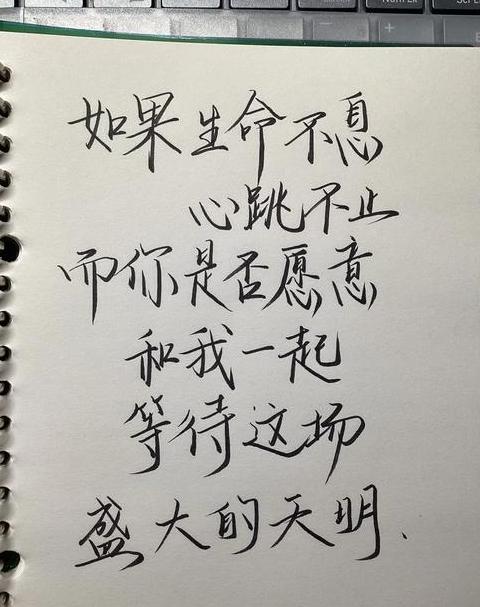 如果生命不息
心跳不止
而你是否愿意
和我一起
等待这场
盛大的天明、